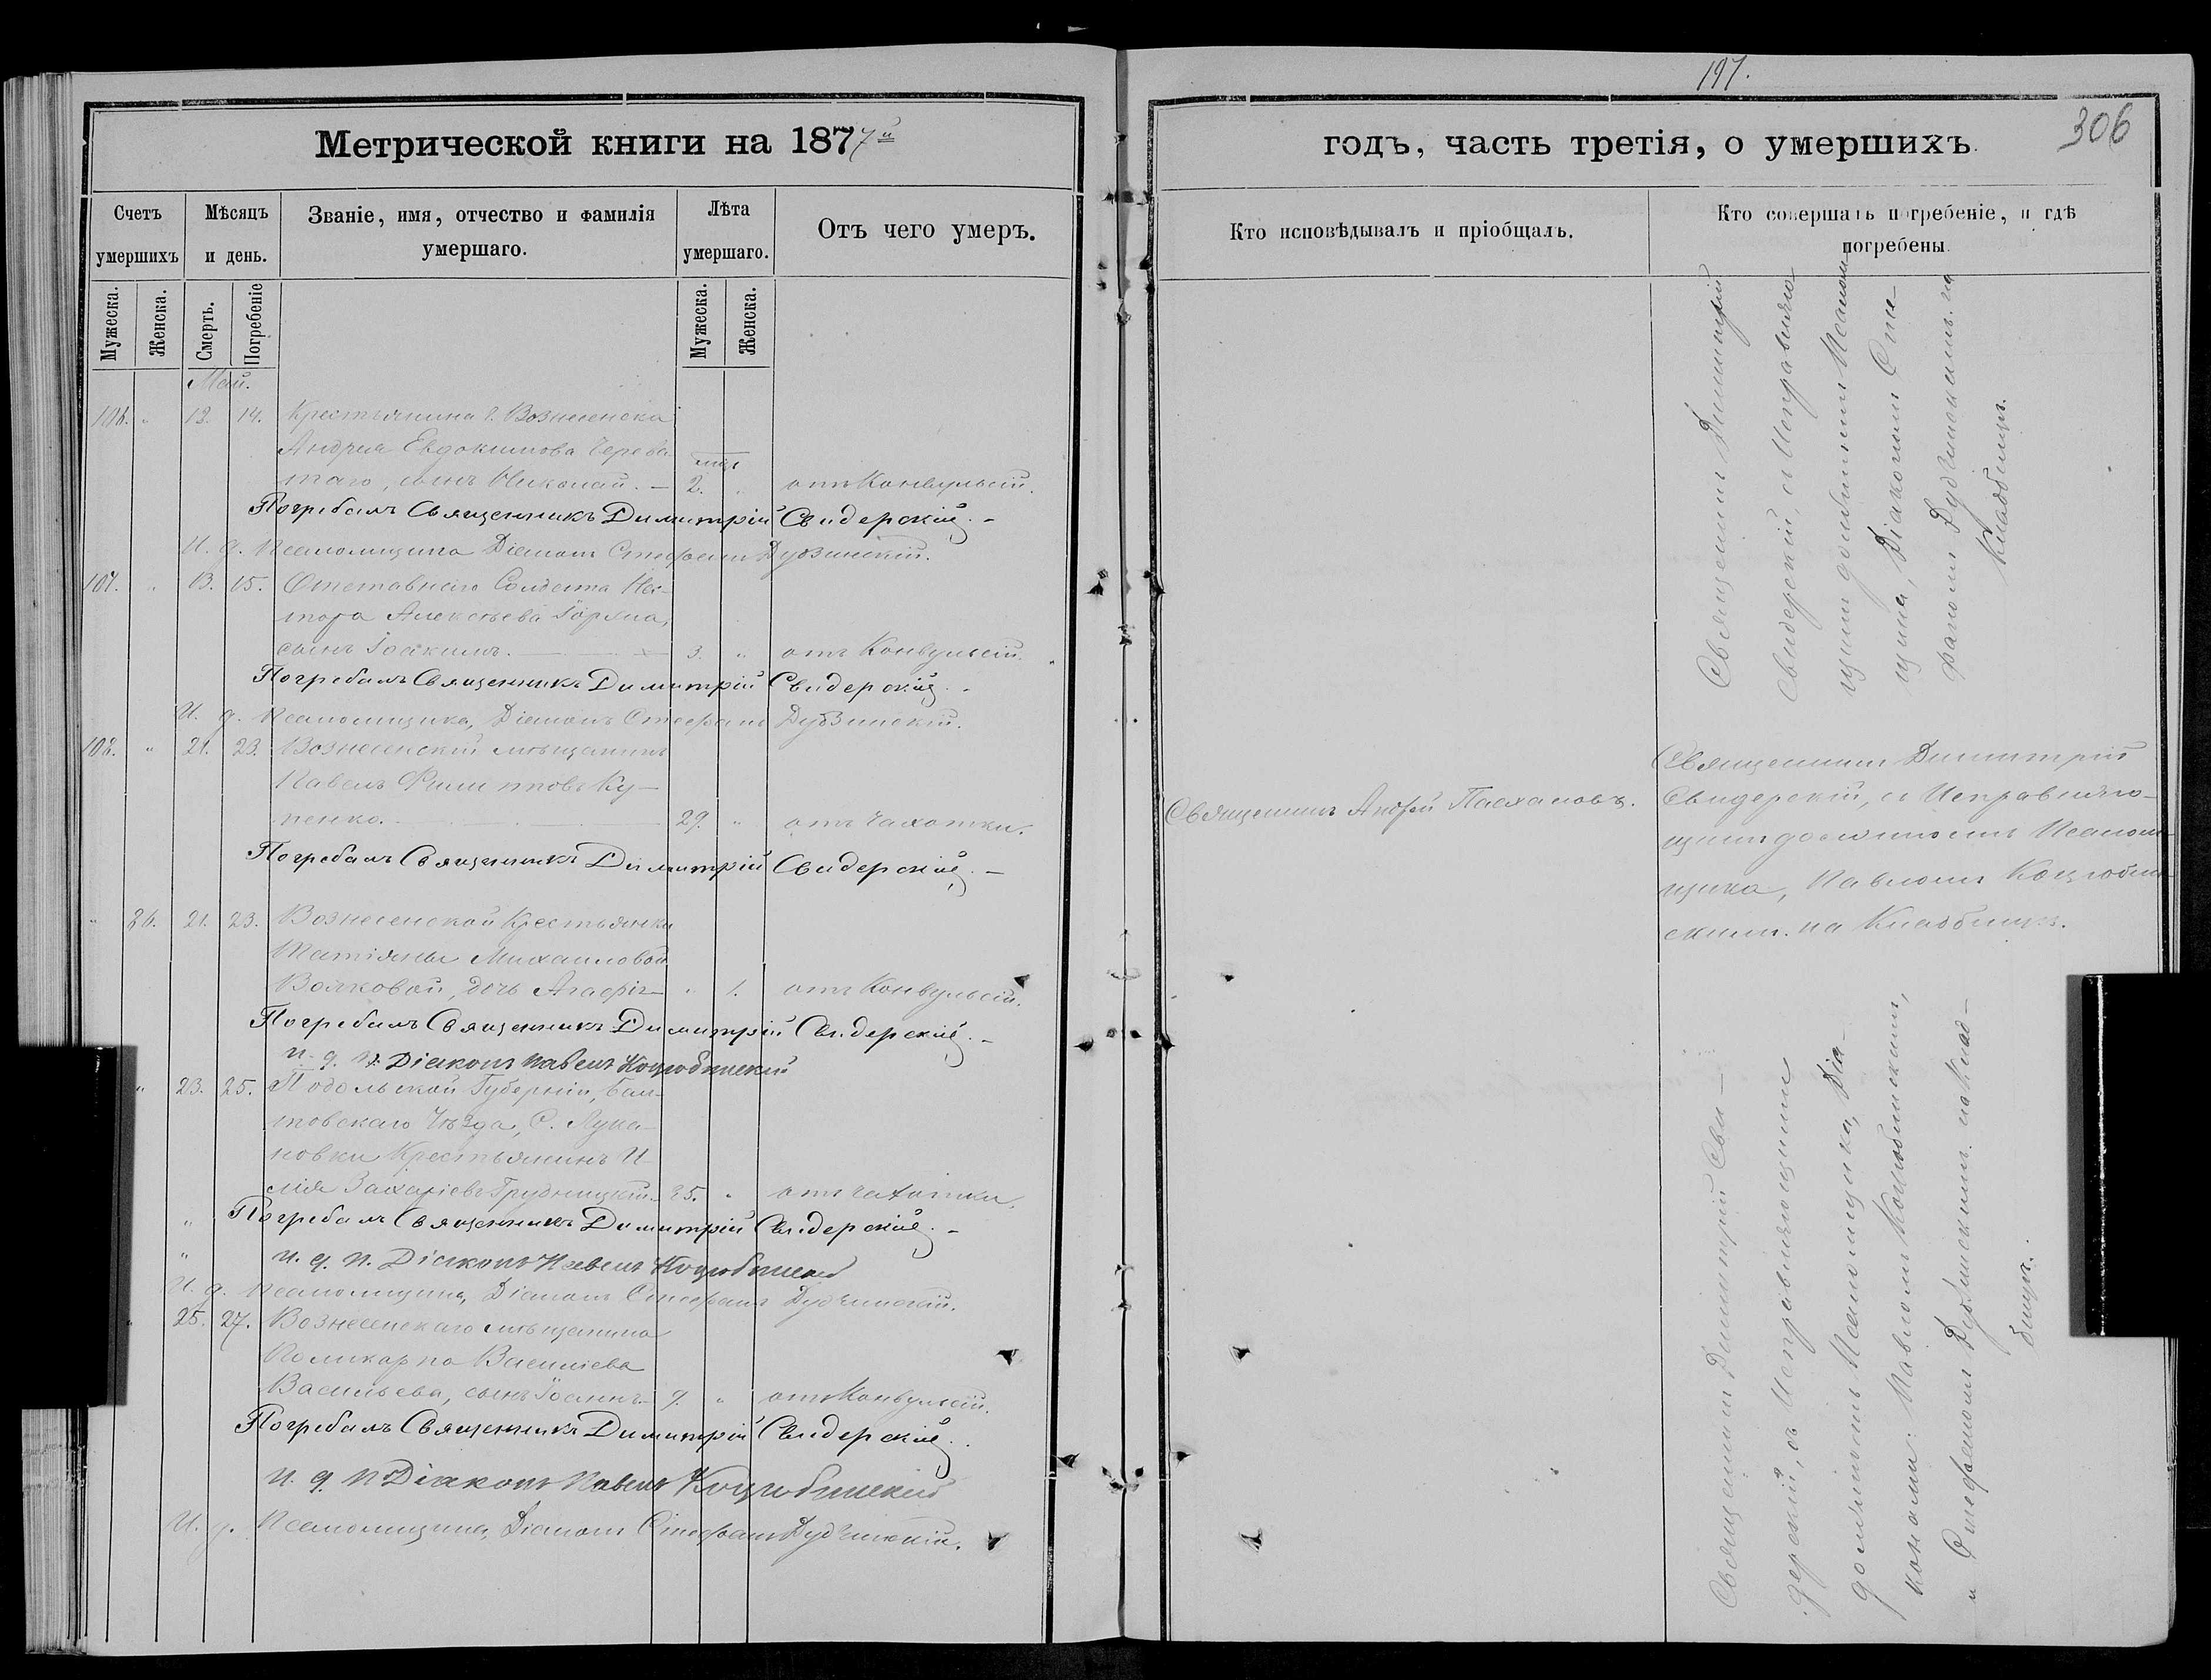 Метрической книги на 1877й
Счетъ умершихъ
Мѣсяцъ и день.
Званіе, имя, отчество и фамилія умершаго.
Лѣта умершаго.
Отъ чего умеръ.
Мужеска.
Женска.
Смерть.
Погребеніе
Мужеска.
Женска.
Май.
106. " 12. 14. Крестьянина г. Вознесенска
Андрея Евдокимова Черева-
таго, сынъ Николай. — 2. " отъ Конвульсій.
Погребалъ Священникъ Димитрій Свидерскій. -
И. д. Псаломщика Діаконъ Стефанъ
107. " 13. 15. Отставнаго Солдата Нес-
тора Алексѣева
сынъ Іоакимъ. — 3. " отъ Конвульсій.
Погребалъ Священникъ Димитрій Свидерскій. -
И. д. Псаломщика, Діаконъ Стефанъ
108. " 21. 23. Вознесенскій мѣщанинъ
Павелъ Филипповъ Ку-
пенко. — 29. " отъ чахотки.
Погребалъ Священникъ Димитрій Свидерскій. -
" 21. 23. Вознесенской Крестьянки
Татіяны Михаиловой
Волковой, дочь — " 1. отъ Конвульсій.
Погребалъ Священникъ Димитрій Свидерскій. -
и. д. п. Діаконъ Павелъ Коцюбинскій
" 23. 25. Подольской Губерніи, Бал-
товскаго Уѣзда, С. Лука-
новки Крестьянинъ И-
лія Захаріевъ Грудницкій. " отъ чахотки.
" Погребалъ Священникъ Димитрій Свидерскій. -
" и. д. п. Діаконъ Павелъ Коцюбинскій
И. д. Псаломщика, Діаконъ Стефанъ
25. 27. Вознесенскаго мѣщанина
Поликарпа Василіева
Васильева, сынъ Іоаннъ. " отъ Конвульсій.
Погребалъ Священникъ Димитрій Свидерскій.
и. д. п. Діаконъ Павелъ Коцюбинскій
И. д. Псаломщика, Діаконъ Стефанъ
197.
306
годъ, часть третія, о умершихъ.
Кто исповѣдывалъ и пріобщалъ.
Кто совершалъ погребеніе, и гдѣ погребены.
Священникъ Димитрій
Свидерскій, съ Исправляю-
щимъ должность Псалом-
щика, Діакономъ Сте-
фаномъ на
Кладбищѣ.
Священникъ Андрей
Священникъ Димитрій
Свидерскій, съ Исправляю-
щимъ должность Псалом-
щика, Павломъ Коцюбин-
скимъ. на Кладбищѣ.
Священникъ Димитрій Сви-
дерскій, съ Исправляющими
должность Псаломщика, Діа-
конами: Павломъ Коцюбинскимъ,
и Стефаномъ на Клад-
бищѣ.